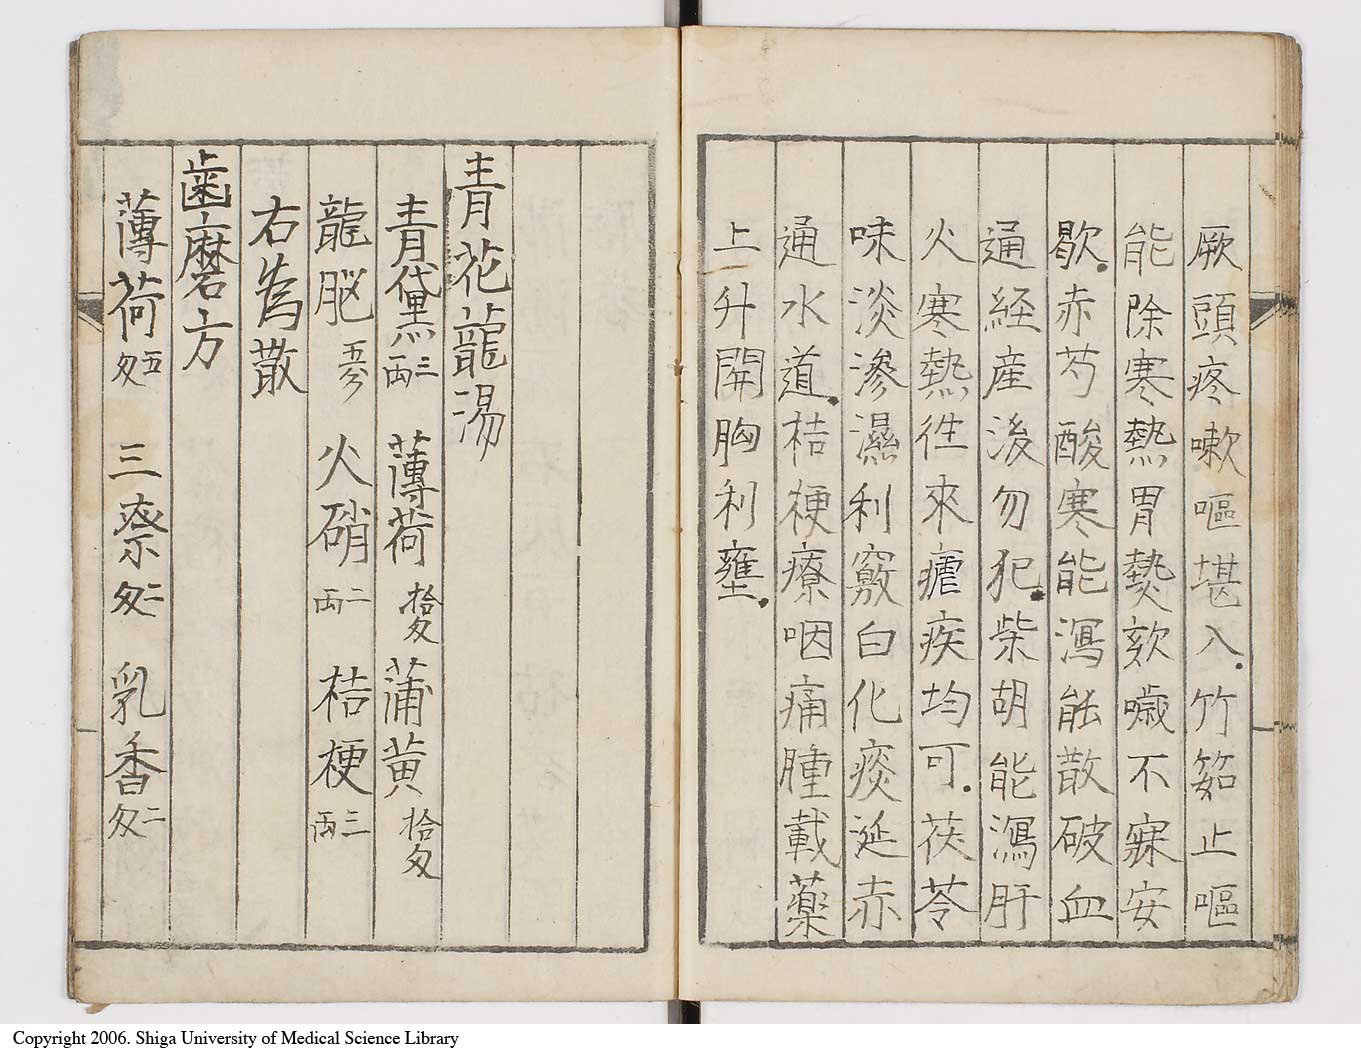 厥頭疼嗽嘔堪入.竹筎止嘔
能除寒熱胃熱欬噦不寐安
歇.赤芍酸寒能瀉能散破血
通経産後勿犯.柴胡能瀉肝
火寒熱徃來瘧疾均可.茯苓
味淡滲濕利竅白化痰涎赤
通水道.桔梗療咽痛腫載藥
上升開胸利壅.
青花龍湯
青黛三両 薄荷拾匁 蒲黄拾匁
龍脳五分 火硝二両 桔梗三両
右為散
歯磨方
薄荷五匁 三奈二匁 乳香二匁
Copyright 2006. Shiga University of Medical Science Library